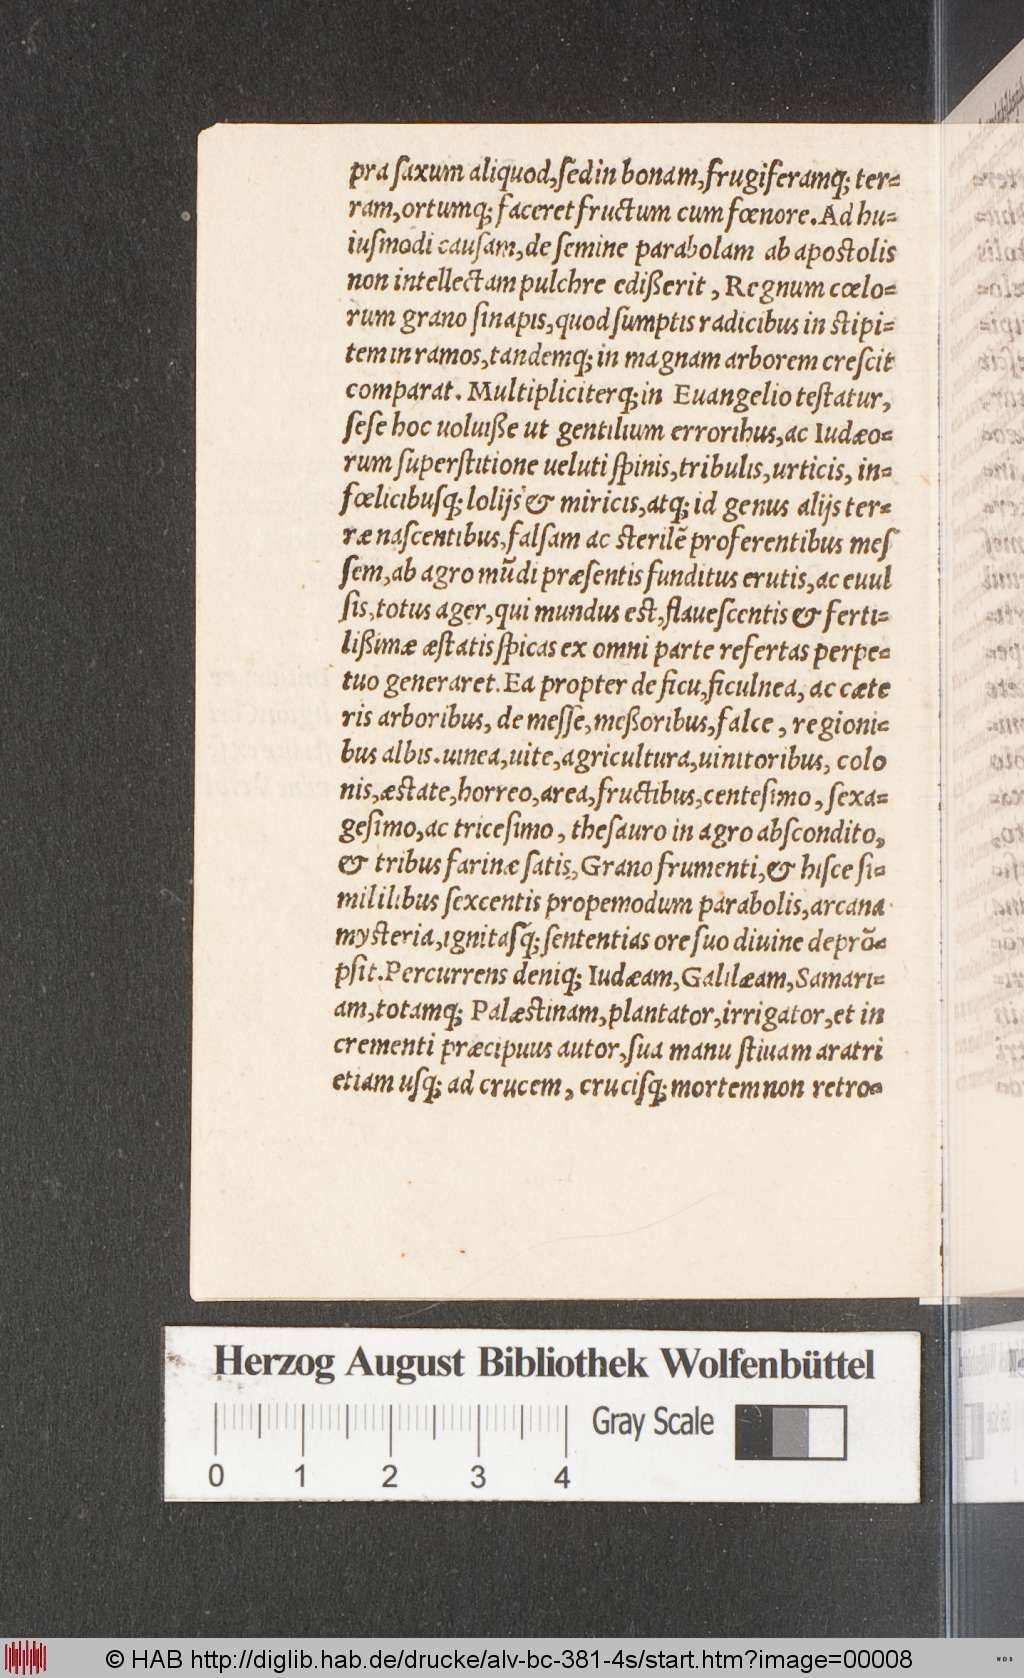 pra saxum aliquod, sed in bonam, frugiferamq; ter=
ram, ortumq; faceret fructum cum fœnore. Ad hu=
iusmodi causam, de semine parabolam ab apostolis
non intellectam pulchre edißerit, Regnum cœlo=
rum grano sinapis, quod sumptis radicibus in stipi=
tem in ramos, tandemq; in magnam arborem crescit
comparat. Multipliciterq; in Euangelio testatur,
sese hoc uoluiße ut gentilium erroribus, ac Iudæo=
rum superstitione ueluti spinis, tribulis, urticis, in=
fœlicibusq; lolijs & miricis, atq; id genus alijs ter=
ræ nascentibus, falsam ac sterilẽ proferentibus mes
sem, ab agro mũdi præsentis funditus erutis, ac euul
sis, totus ager, qui mundus est, flauescentis & ferti=
lißimæ æstatis spicas ex omni parte refertas perpe=
tuo generaret. Ea propter de ficu, ficulnea, ac cæte
ris arboribus, de messe, meßoribus, falce, regioni=
bus albis. uinea, uite, agricultura, uinitoribus, colo
nis, æstate, horreo, area, fructibus, centesimo, sexa=
gesimo, ac tricesimo, thesauro in agro abscondito,
& tribus farinæ satis, Grano frumenti, & hisce si=
mililibus sexcentis propemodum parabolis, arcana
mysteria, ignitasq̃; sententias ore suo diuine deprõ=
psit. Percurrens deniq; Iudæam, Galilæam, Samari=
am, totamq; Palæstinam, plantator, irrigator, et in
crementi præcipuus autor, sua manu stiuam aratri
etiam usq; ad crucem, crucisq; mortem non retro=
Herzog August Bibliothek Wolfenbüttel
Gray Scale
0 1 2 3 4
© HAB http://diglib.hab.de/drucke/alv-bc-381-4s/start.htm?image=00008